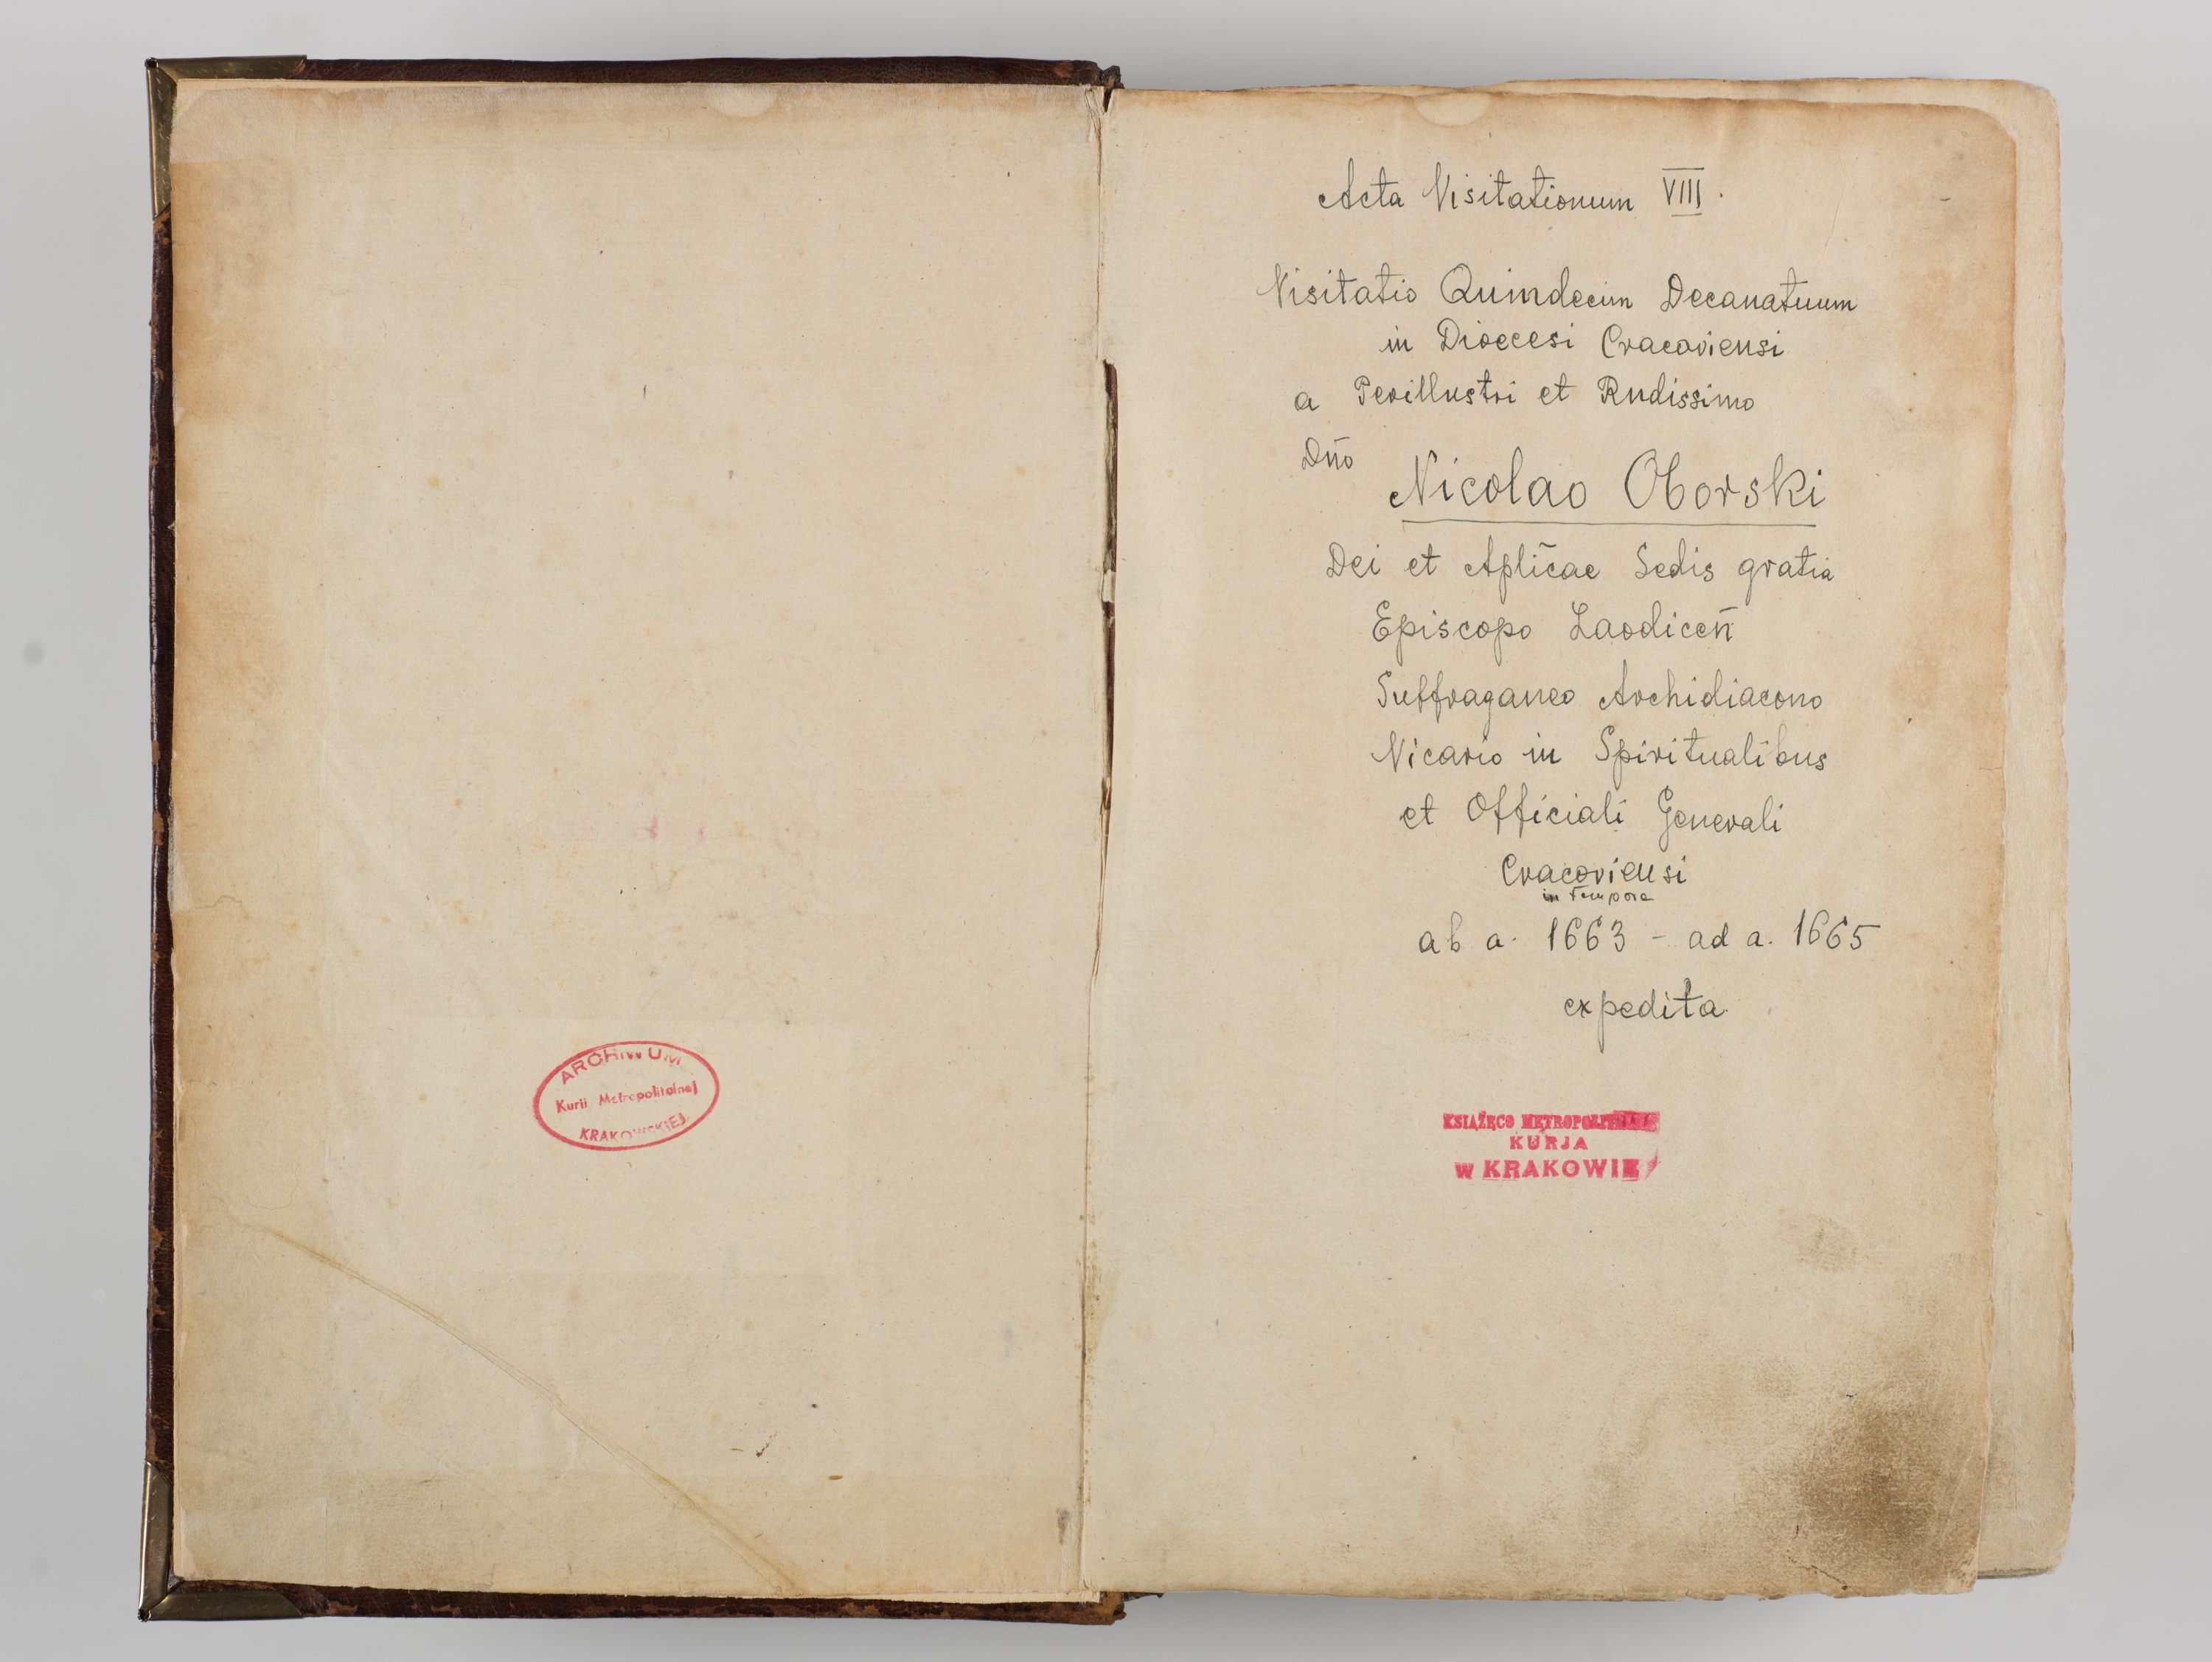 ARCHIWUM
Kurii Metropolitalnej
KRAKOWSKIEJ
Acta Visitationum VIII.
Visitatio Quindecim Decanatuum
in Dioecesi Cracoviensi
a Perillustri et Rndissimo
Dño
Nicolao Oborski
Dei et Aplic̃ae Sedis gratia
Episcopo Laodiceñ
Suffraganeo Archidiacono
Vicario in Spiritualibus
et Officiali Generali
Cracoviensi
in tempore
ab a. 1663 - ad a. 1665
expedita
KSIĄŻĘCO
KURJA
W KRAKOWIE